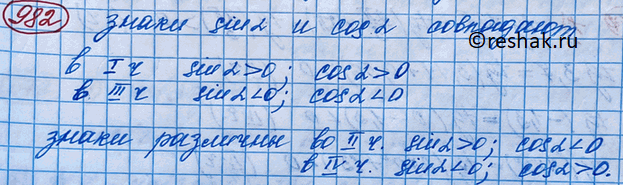 982 знаки sin α и cos α совпадают
©reshak.ru
в I ч sin α > 0; cos α > 0
в III ч sin α < 0; cos α < 0
знаки различны во II ч. sin α > 0; cos α < 0
в IV ч. sin α < 0; cos α > 0.